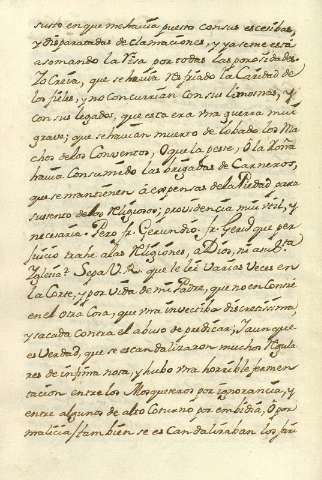 susto en que me havia puesto con sus escritos,
y disparatadas declamaciones, y ya se me està
asomando la risa por todas las porosidades.
Yo creìa, que se havia resfriado la Caridad de
los fieles, y no concurrian con sus limosnas, y
con sus legados, que esta era una guerra muy
grave; que se havian muerto de lobado los Ma
chos de los Conventos, ò que la peste, ò la roña
havia consumido las brigadas de Carneros,
que se mantienen à expensas de la Piedad para
sustento de los Religiosos; providencia mui util, y
necesaria. Pero fr. Gerundio? fr. Gerund que per
juicio trahe à las Religiones, à Dios, ni à su Sta
Yglesia? Sepa V. R. que le lei varias veces en
la Corte, y por vida de mi Padre, que no encontrè
en èl otra cosa, que una invectiva discretissima,
y sacada contra el abuso de predicar; y aunque
es verdad, que se escandalizaron muchos Regula
res de infima nota, y hubo una horrible fermen
tacion entre los Mosqueteros por ignorancia, y
entre algunos de alto Coturno por embidia, ò por
malicia, tambien se escandalizaban los fari